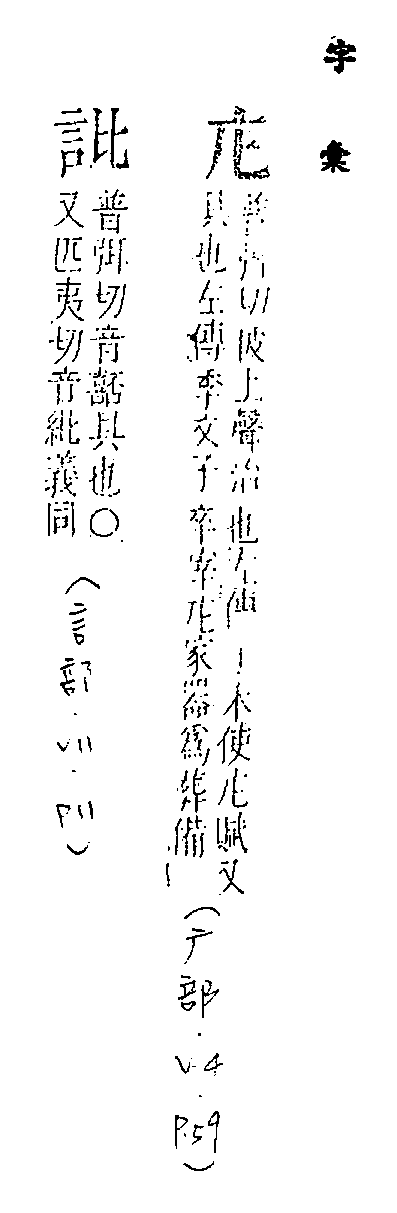 字彙
庀
普弭切披上聲治也左傳子木使庀賦又
具也左傳季文子卒宰庀家器爲葬備
(广部.V4.P.59)
䚹
普弭切音諀具也○
又匹夷切音紕義同
(言部.V11.P11)